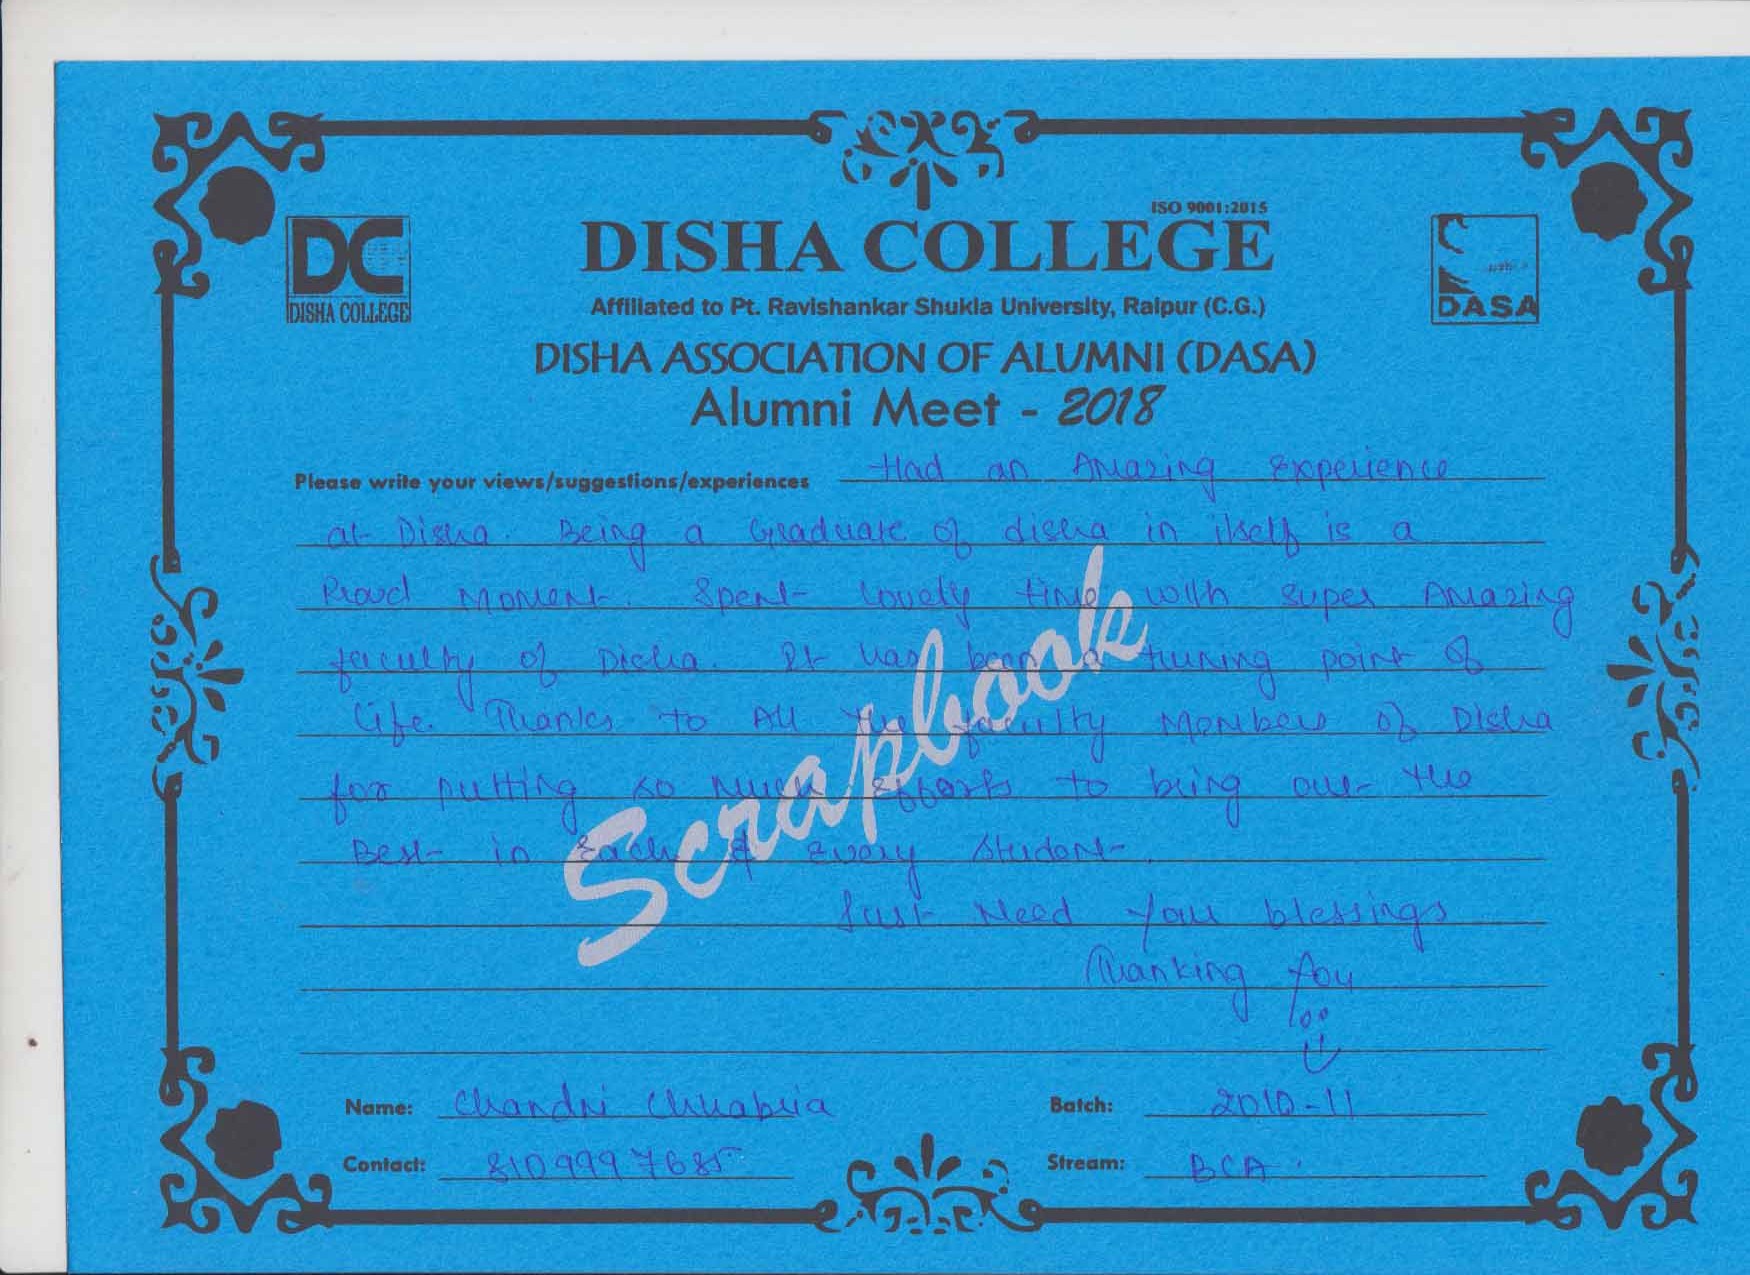 ISO 9001:2015
DISHA COLLEGE
DC
DISHA COLLEGE
DASA
Affiliated to Pt. Ravishankar Shukla University, Raipur (C.G.)
DISHA ASSOCIATION OF ALUMNI (DASA)
Alumni Meet - 2018
Please write your views/suggestions/experiences Had an Amazing Experience
at Disha. Being a Graduate of disha in itself is a
Proud Moment. Spent lovely time with super Amazing
faculty of Disha. It has been a turning point of
life. Thanks to All the faculty Members of Disha
for putting so much efforts to bring out the
Best in Each & Every student.
Just Need your blessings
Thanking you
Scrapbook
Name: Chandni Chhabria Batch: 2010-11
Contact: 8109997685 Stream: BCA.